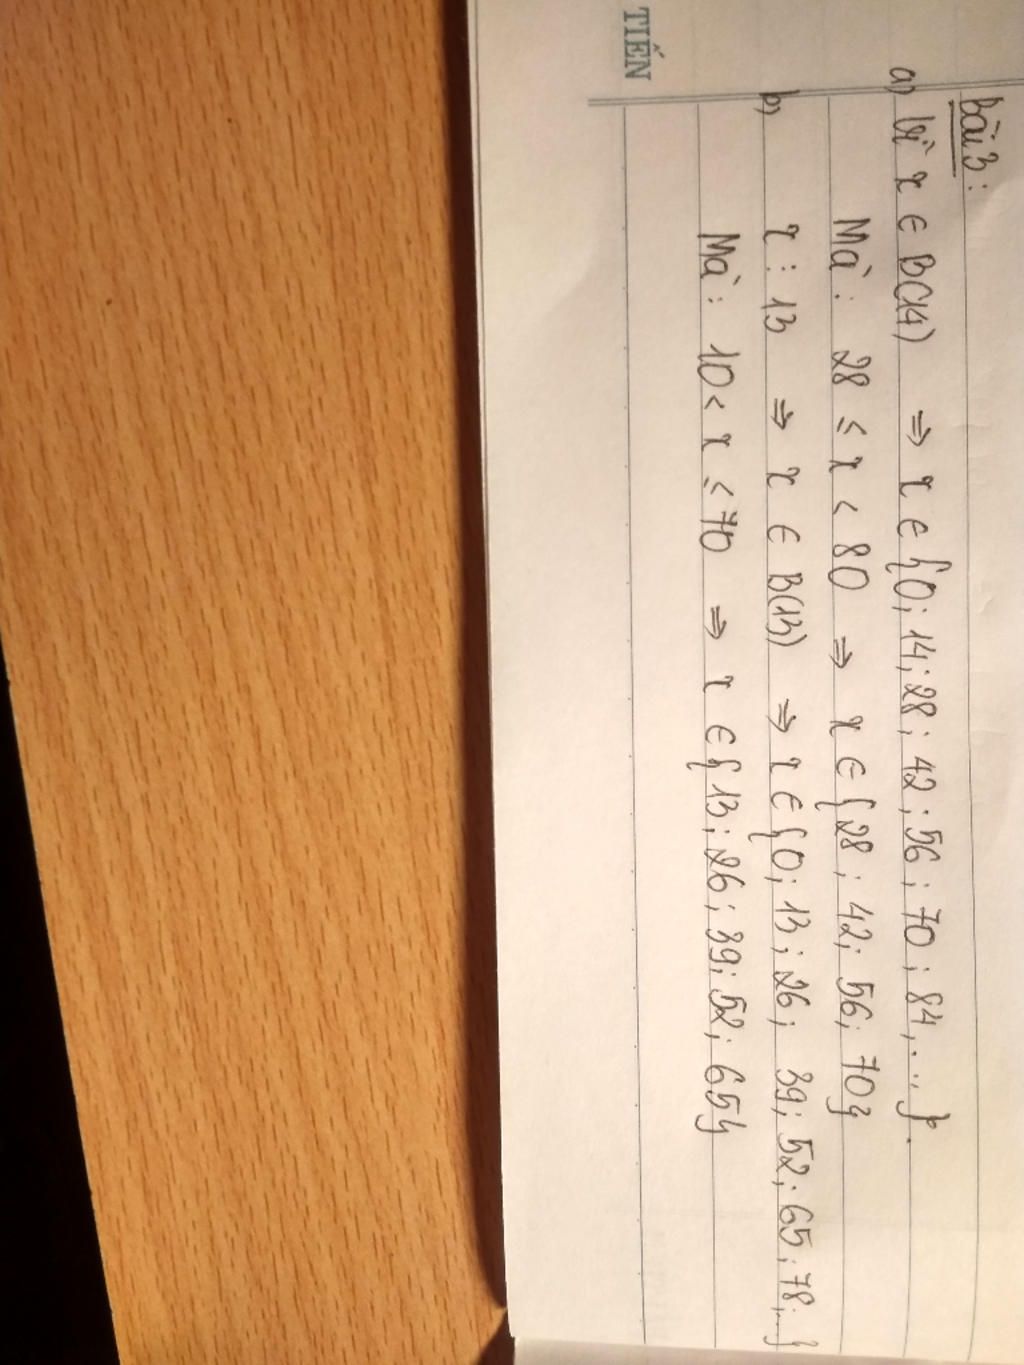 TIẾN
Bài 3:
a) Vì x ∈ B(14) ⇒ x ∈ {0; 14; 28; 42; 56; 70; 84,...}.
Mà: 28 ≤ x < 80 ⇒ x ∈ {28; 42; 56; 70}
b) x ⋮ 13 ⇒ x ∈ B(13) ⇒ x ∈ {0; 13; 26; 39; 52; 65; 78;...}
Mà: 10 < x ≤ 70 ⇒ x ∈ {13; 26; 39; 52; 65}